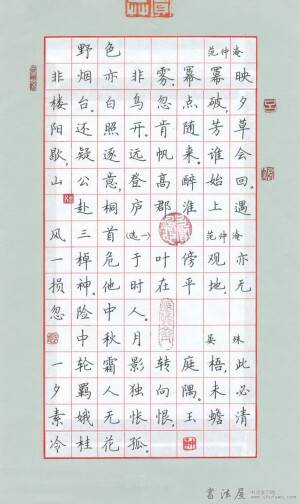 野色 范仲淹
非烟亦非雾,幂幂映
楼台。白鸟忽点破,夕
阳还照开。肯随芳草
歇,疑逐远帆来。谁会
山公意,登高醉始回。
赴桐庐郡淮上遇
风三首(选一) 范仲淹
一棹危于叶,傍观亦
损神。他时在平地,无
忽险中人。
中秋月 晏殊
一轮霜影转庭梧,此
夕羁人独向隅。未必
素娥无怅恨,玉蟾清
冷桂花孤。
書法屋